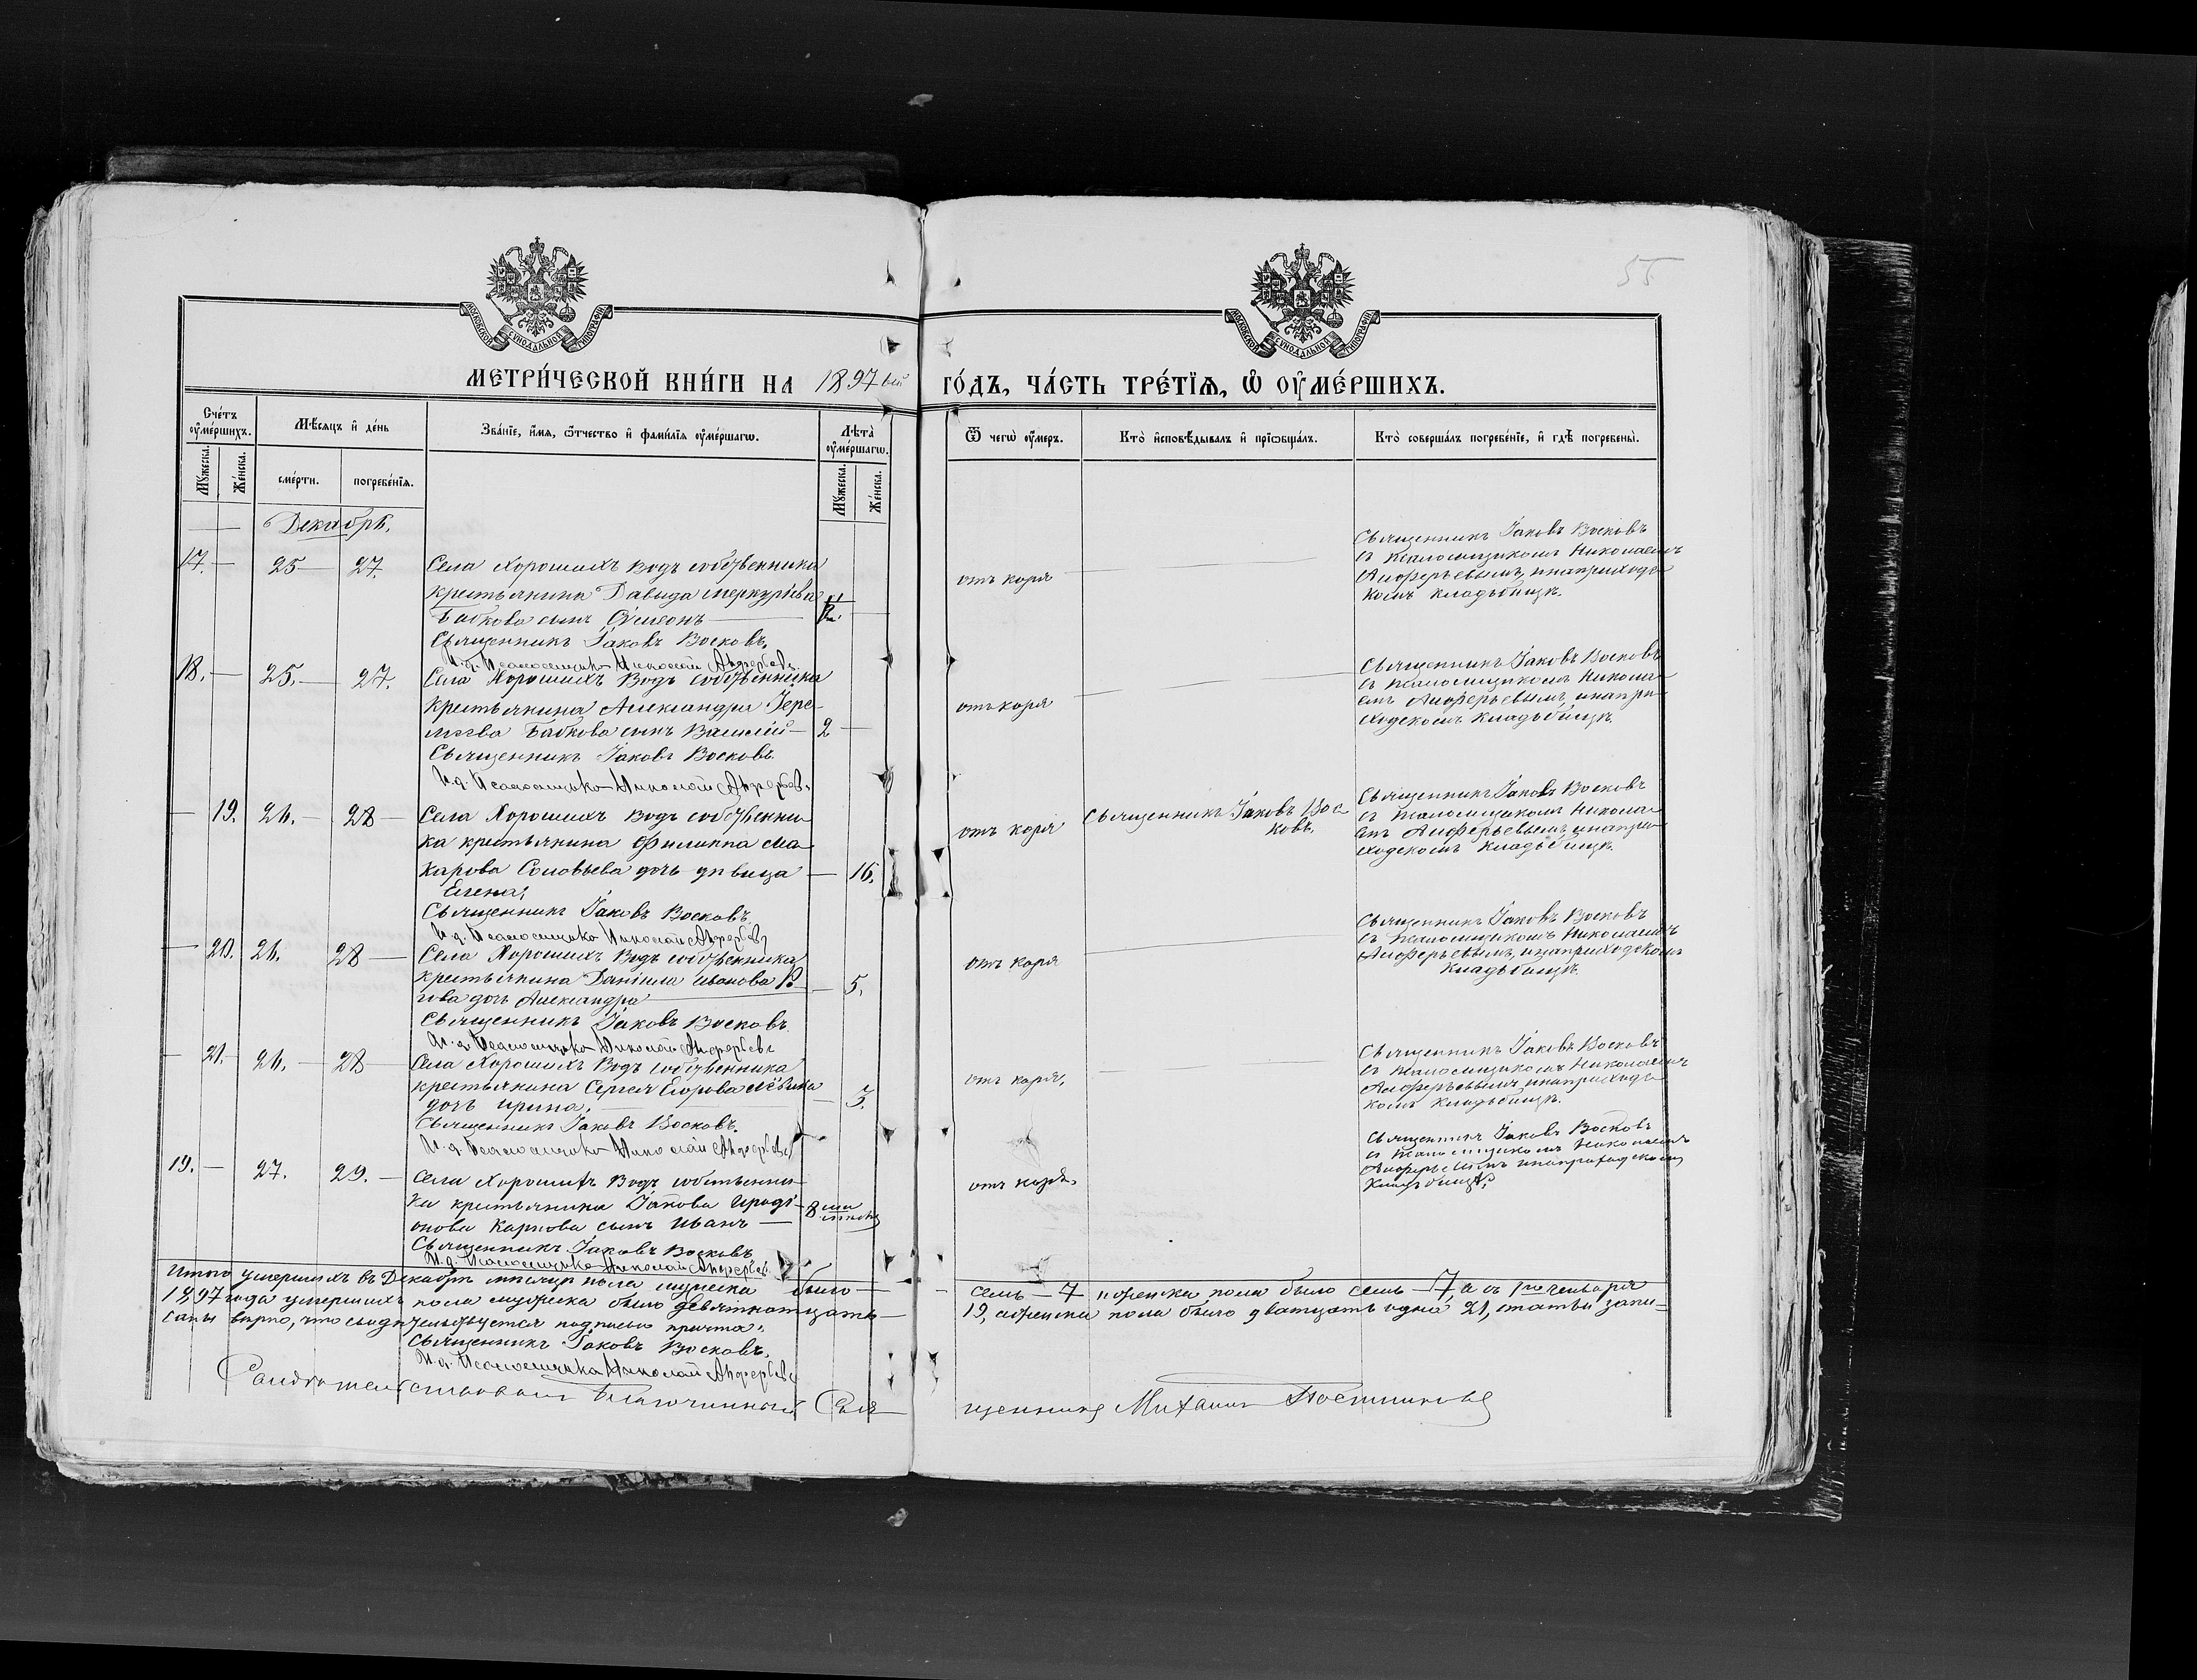 55
МОСКОВСКОЙ СУНОДАЛЬНОЙ ТИПОГРАФІИ
МОСКОВСКОЙ СУНОДАЛЬНОЙ ТИПОГРАФІИ
МЕТРИ́ЧЕСКОЙ КНИ́ГИ НА 1897 ый ГО́ДЪ, ЧА́СТЬ ТРЕ́ТІѦ, Ѡ ОУ҆МЕ́РШИХЪ.
Сче́тъ оу҆ме́ршихъ.
Мꙋ́жеска.
Же́нска.
Мѣ́сяцъ и҆ де́нь
сме́рти.
погребе́нїя.
Зва́нїе, и҆́мя, ѻ҆́тчество и҆ фами́лїя оу҆ме́ршагѡ.
Лѣ́та оу҆ме́ршагѡ.
Мꙋ́жеска.
Же́нска.
Ѿ чегѡ̀ оу҆́меръ.
Кто̀ и҆сповѣ́дывалъ и҆ прїѡбща́лъ.
Кто̀ соверша́лъ погребе́нїе, и҆ гдѣ̀ погребены̀.
Декабрь.
17. — 25 — 27.
Села Хорошихъ Водъ собственника
крестьянина Давида Меркурьева
Бабкова сынъ Симеонъ —
Священникъ Іаковъ Восковъ.
И. д. Псаломщика Николай Анферьевъ.
отъ коря
Священникъ Іаковъ Восковъ
съ псаломщикомъ Николаемъ
Анферьевымъ, на приходс-
комъ кладбищѣ.
18. — 25. — 27.
Села Хорошихъ Водъ собственника
крестьянина Александра Іере-
міева Бабкова сынъ Василій — 2 —
Священникъ Іаковъ Восковъ.
И. д. Псаломщика Николай Анферьевъ.
отъ коря
Священникъ Іаковъ Восковъ
съ псаломщикомъ Никола-
емъ Анферьевымъ, на при-
ходскомъ кладбищѣ.
— 19. 26. — 28 —
Села Хорошихъ Водъ собственни-
ка крестьянина Филиппа Ма-
карова Соловьева дочь дѣвица — 16.
Елена.
Священникъ Іаковъ Восковъ.
И. д. Псаломщика Николай Анферьевъ
отъ коря
Священникъ Іаковъ Вос-
ковъ.
Священникъ Іаковъ Восковъ
съ псаломщикомъ Никола-
емъ Анферьевымъ, на при-
ходскомъ кладбищѣ.
— 20. 26. 28 —
Села Хорошихъ Водъ собственника
крестьянина Даніила Иванова — 5.
дочь Александра —
Священникъ Іаковъ Восковъ.
И. д. Псаломщика Николай Анферьевъ
отъ коря
Священникъ Іаковъ Восковъ
съ псаломщикомъ Николаемъ
Анферьевымъ, на приходскомъ
кладбищѣ.
— 21. — 26. — 28 —
Села Хорошихъ Водъ собственника
крестьянина Сергея Егорова
дочь Ирина. — 3.
Священникъ Іаковъ Восковъ.
И. д. Псаломщика Николай Анферьевъ
отъ коря.
Священникъ Іаковъ Восковъ
съ псаломщикомъ Николаемъ
Анферьевымъ, на приходс-
комъ кладбищѣ.
19. — 27. 29. —
Села Хорошихъ Водъ собственни-
ка крестьянина Іакова Ироді-
онова Карпова сынъ Иванъ —
Священникъ Іаковъ Восковъ
И. д. Псаломщика Николай Анферьевъ
отъ коря.
Священникъ Іаковъ Восковъ
съ псаломщикомъ Николаемъ
Анферьевымъ на приходскомъ
кладбищѣ.
Итого умершихъ въ Декабрѣ мѣсяцѣ пола мужеска было — семь — 7 и женска пола было семь — 7, а съ 1го генваря
1897 года умершихъ пола мужеска было девятнатцать — 19, а женска пола было дватцать одна 21, статьи запи-
саны вѣрно, что свидѣтельствуется подписью причта.
Священникъ Іаковъ Восковъ.
И. д. Псаломщика Николай Анферьевъ
Свидѣтельствовалъ Благочинный Свя- щенникъ Михаилъ Постниковъ